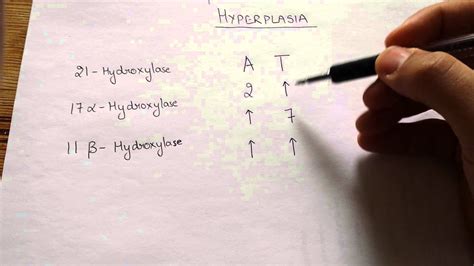 HYPERPLASIA
A T
21-Hydroxylase 2 ↑
17α-Hydroxylase ↑ 7
11 β-Hydroxylase ↑ ↑